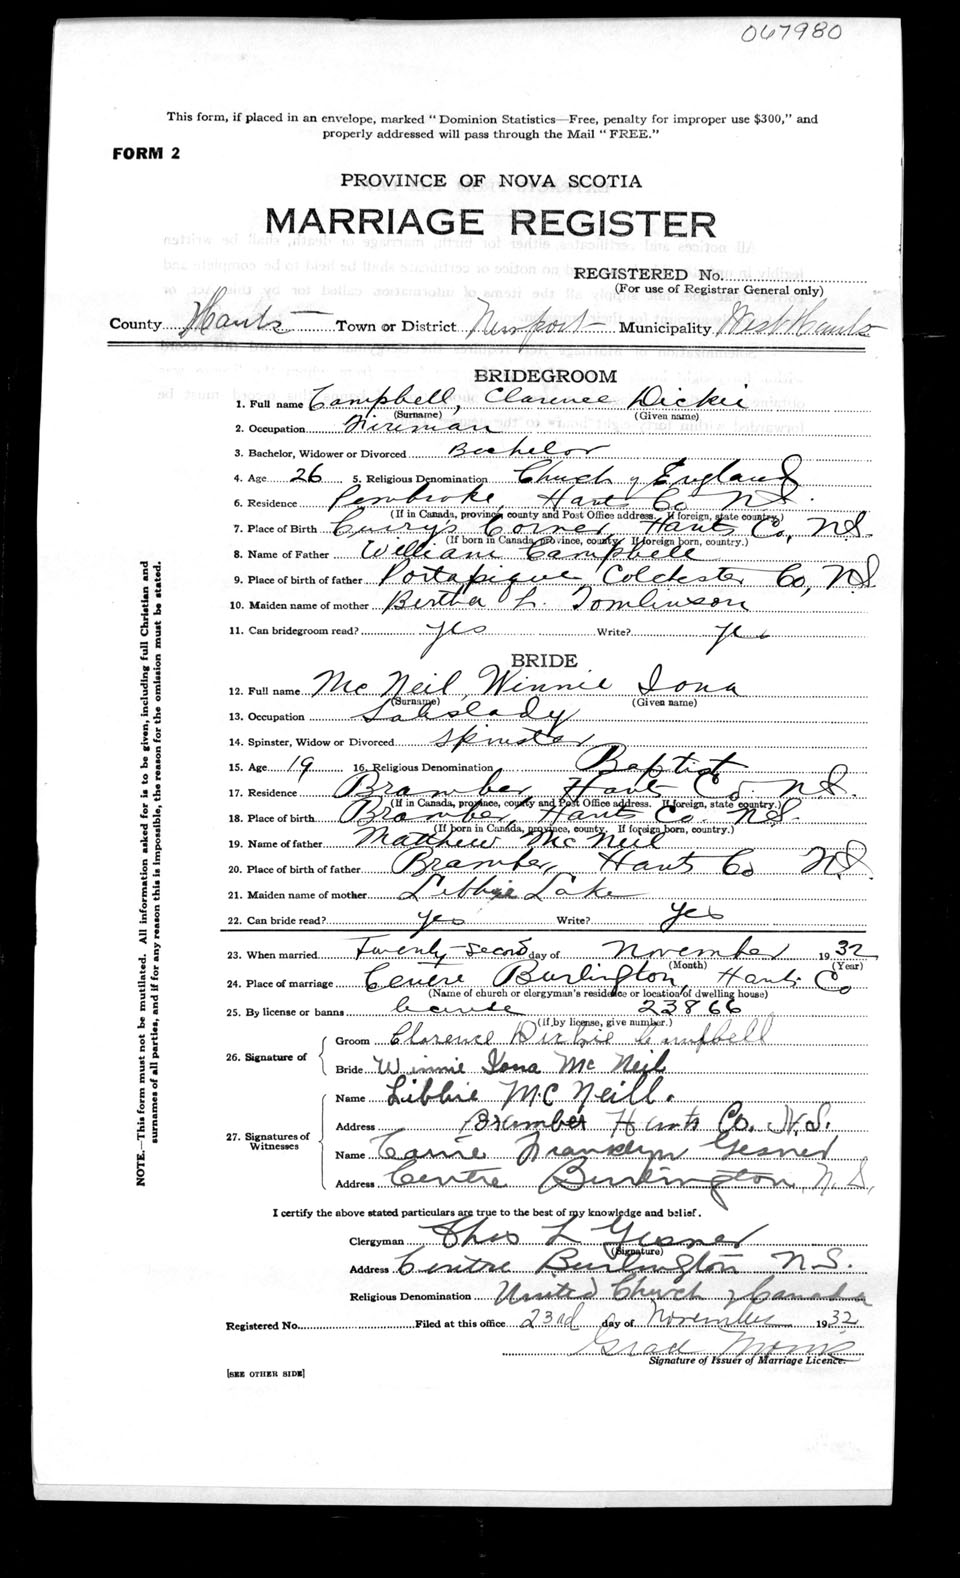 067980
This form, if placed in an envelope, marked "Dominion Statistics—Free, penalty for improper use $300," and
properly addressed will pass through the Mail "FREE."
FORM 2
PROVINCE OF NOVA SCOTIA
MARRIAGE REGISTER
REGISTERED No.
(For use of Registrar General only)
County Hants Town or District Newport Municipality West Hants
BRIDEGROOM
1. Full name Campbell, Clarence Dickie
(Surname) (Given name)
2. Occupation Fireman
3. Bachelor, Widower or Divorced Bachelor
4. Age 26 5. Religious Denomination Church of England
6. Residence Pembroke, Hants Co N.S.
(If in Canada, province, county and Post Office address. If foreign, state country.)
7. Place of Birth Curry's Corner, Hants Co, N.S.
(If born in Canada, province, county. If foreign born, country.)
8. Name of Father William Campbell
9. Place of birth of father Portapique, Colchester Co, N.S.
10. Maiden name of mother Bertha L. Tomlinson
11. Can bridegroom read? yes Write? yes
BRIDE
12. Full name McNeil, Winnie Iona
(Surname) (Given name)
13. Occupation Saleslady
14. Spinster, Widow or Divorced Spinster
15. Age 19 16. Religious Denomination Baptist
17. Residence Bramber, Hants Co. N.S.
(If in Canada, province, county and Post Office address. If foreign, state country.)
18. Place of birth Bramber, Hants Co. N.S.
(If born in Canada, province, county. If foreign born, country.)
19. Name of father Matthew McNeil
20. Place of birth of father Bramber, Hants Co N.S.
21. Maiden name of mother Libbie Lake
22. Can bride read? yes Write? yes
23. When married Twenty-second day of November 1932
(Month) (Year)
24. Place of marriage Centre Burlington, Hants Co
(Name of church or clergyman's residence or location of dwelling house)
25. By license or banns license 23866
(If by license, give number.)
26. Signature of
Groom Clarence Dickie Campbell
Bride Winnie Iona McNeil
27. Signatures of Witnesses
Name Libbie McNeill.
Address Bramber Hants Co. N.S.
Name Carrie Franklyn Gesner
Address Centre Burlington, N.S.
I certify the above stated particulars are true to the best of my knowledge and belief.
Clergyman Chas L Gesner
(Signature)
Address Centre Burlington N.S.
Religious Denomination United Church of Canada
Registered No. Filed at this office 23rd day of November 1932
Signature of Issuer of Marriage Licence.
[SEE OTHER SIDE]
NOTE.—This form must not be mutilated. All information asked for is to be given, including full Christian and
surnames of all parties, and if for any reason this is impossible, the reason for the omission must be stated.